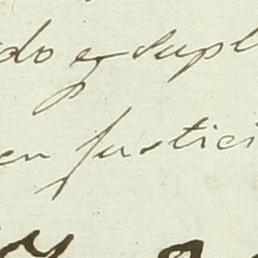 do q supl
en justici